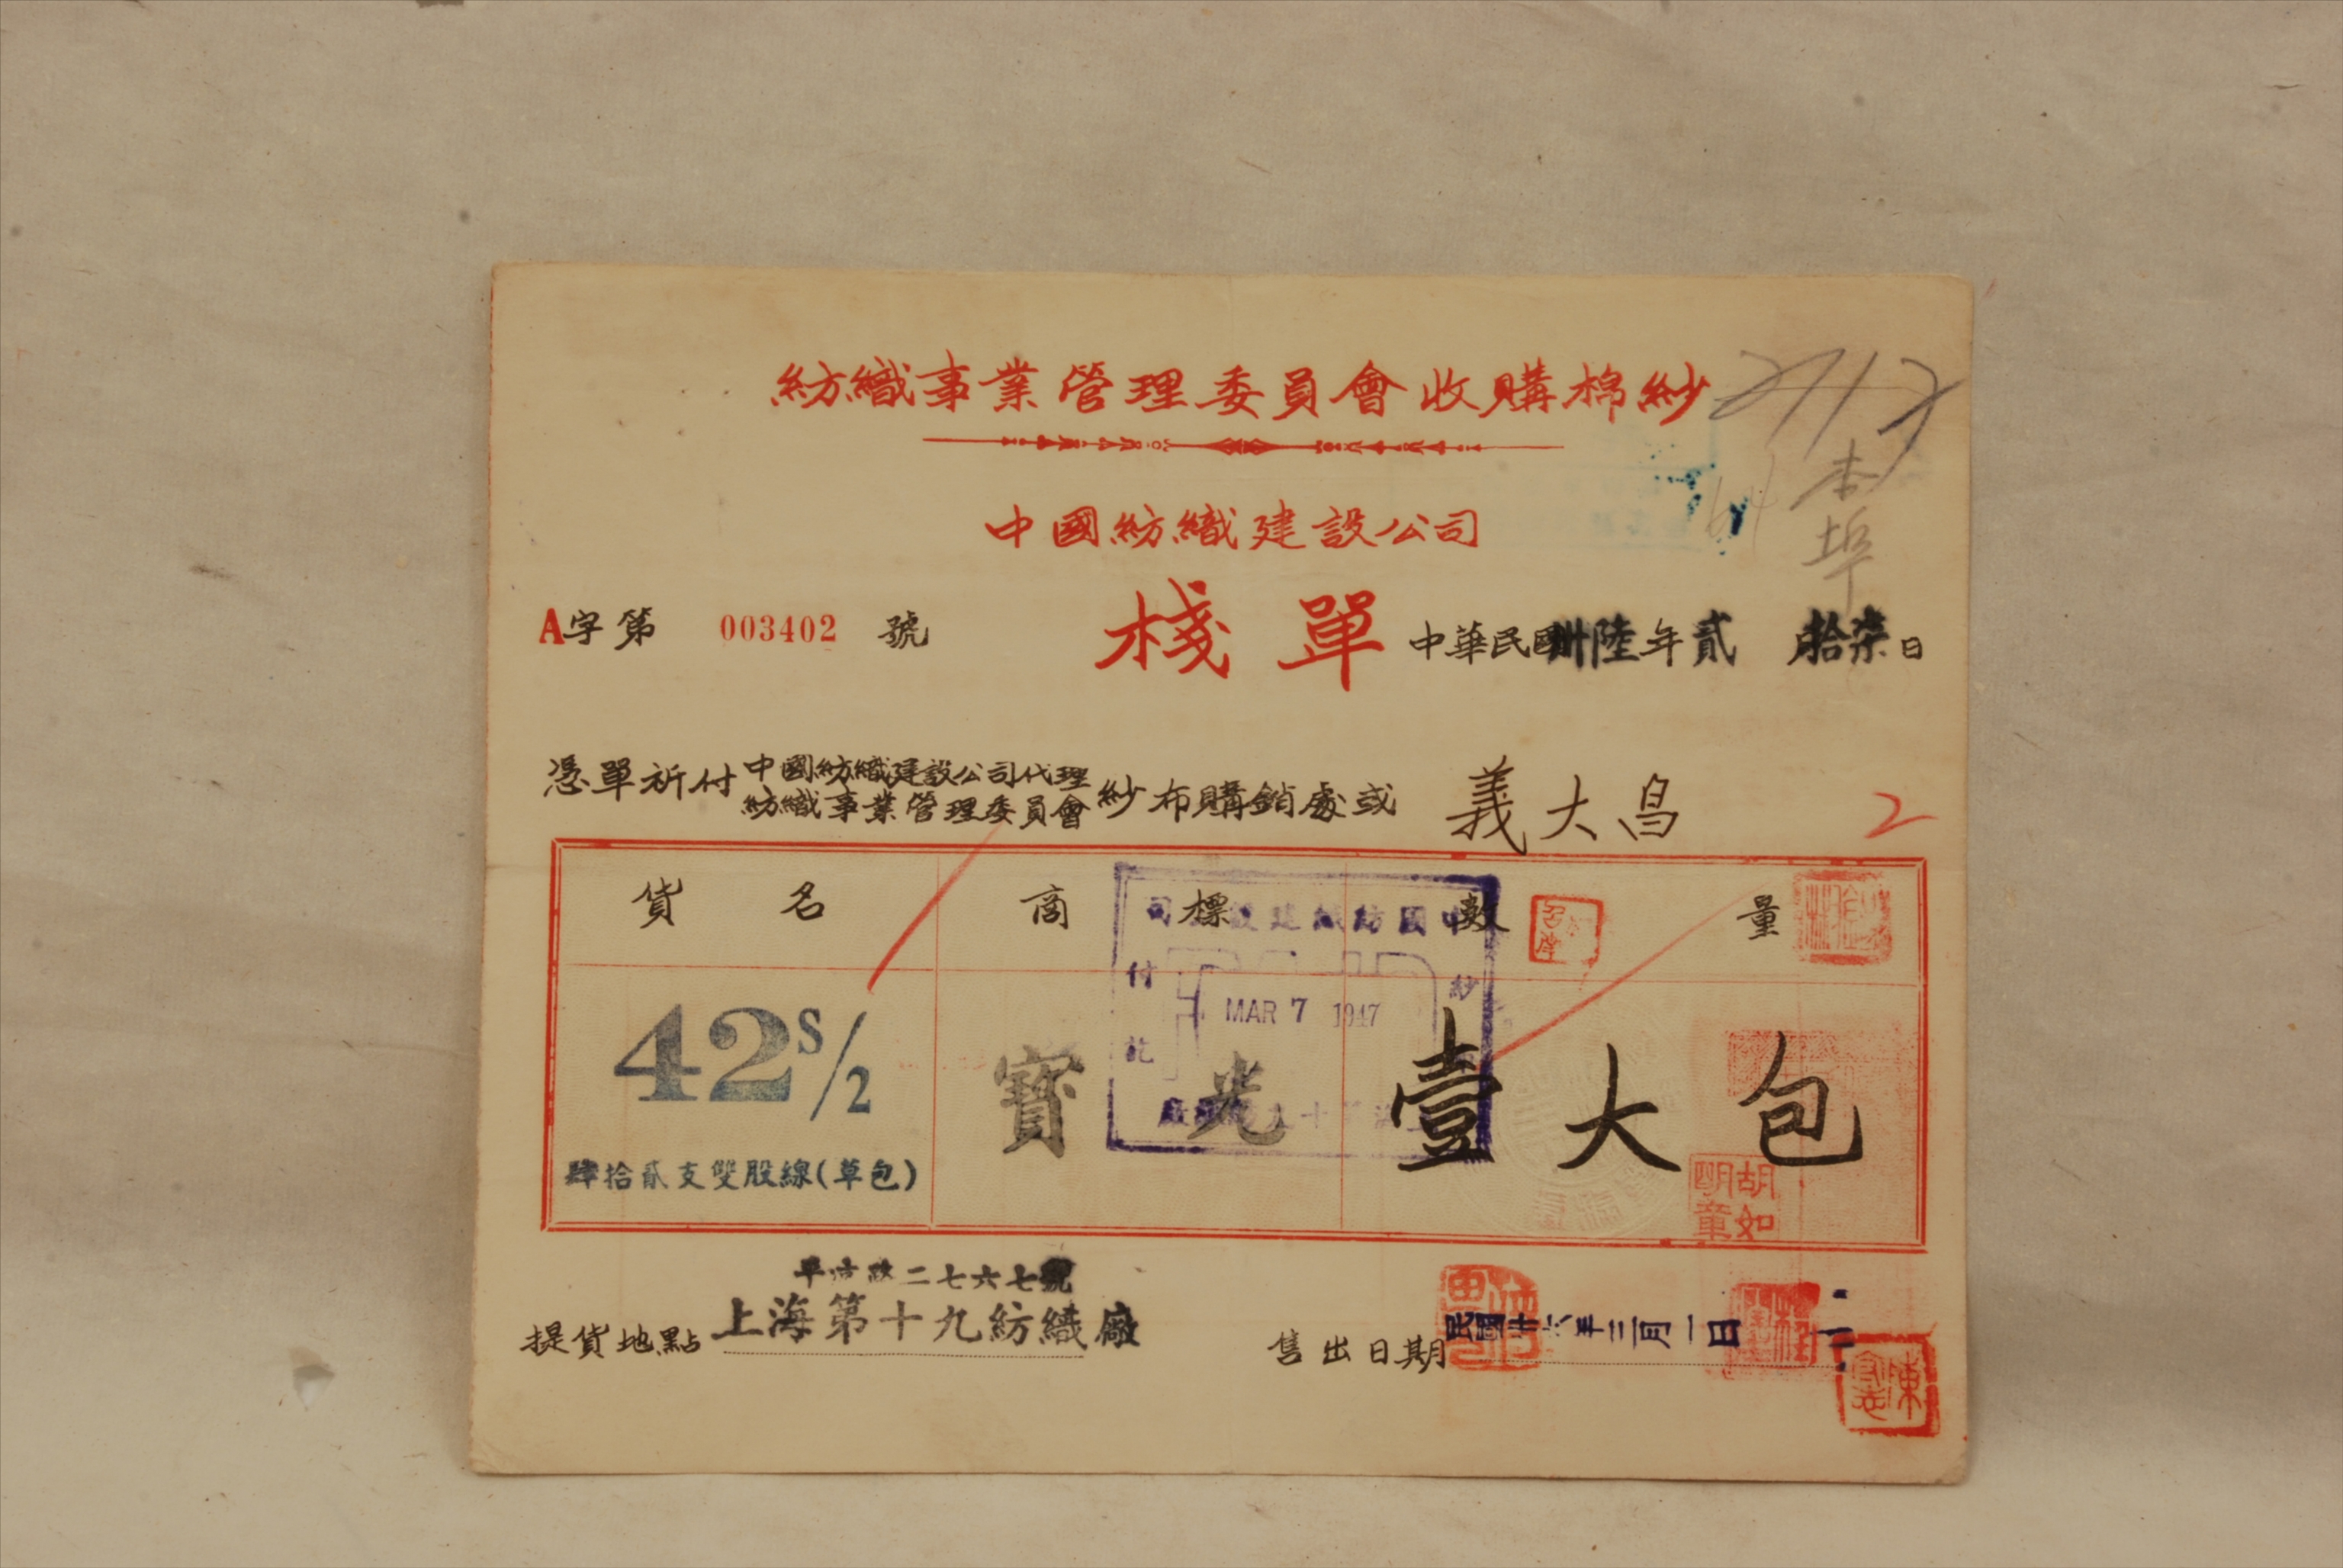 紡織事業管理委員會收購棉紗
2712
本埠
中國紡織建設公司
A字第 003402 號
棧單
中華民國卅陸年貳月拾柒日
憑單祈付中國紡織建設公司代理紡織事業管理委員會紗布購銷處或 義大昌
2
貨名 商標 數量
中國紡織建設公司
紗
付訖
MAR 7 1947
42S/2
寶光
壹大包
肆拾貳支雙股線(草包)
胡如明章
二七六七號
提貨地點 上海第十九紡織廠
售出日期 民國卅六年三月一日